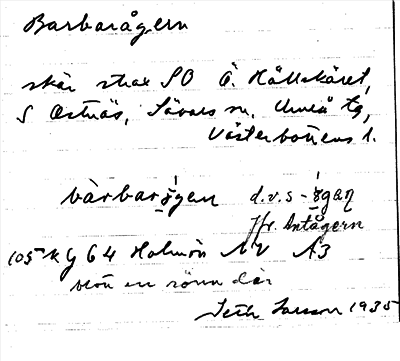 Barbarågern
skär strax SO Ö. Hällskäret,
S Ostnäs, Sävars sn, Umeå tg,
Västerbottens l.
bàrbarågen d.v.s - ågaɳ
Jfr. Antågern
105 Kg 64 Holmön NV Å3
en rönn där
Seth Larsson 1935